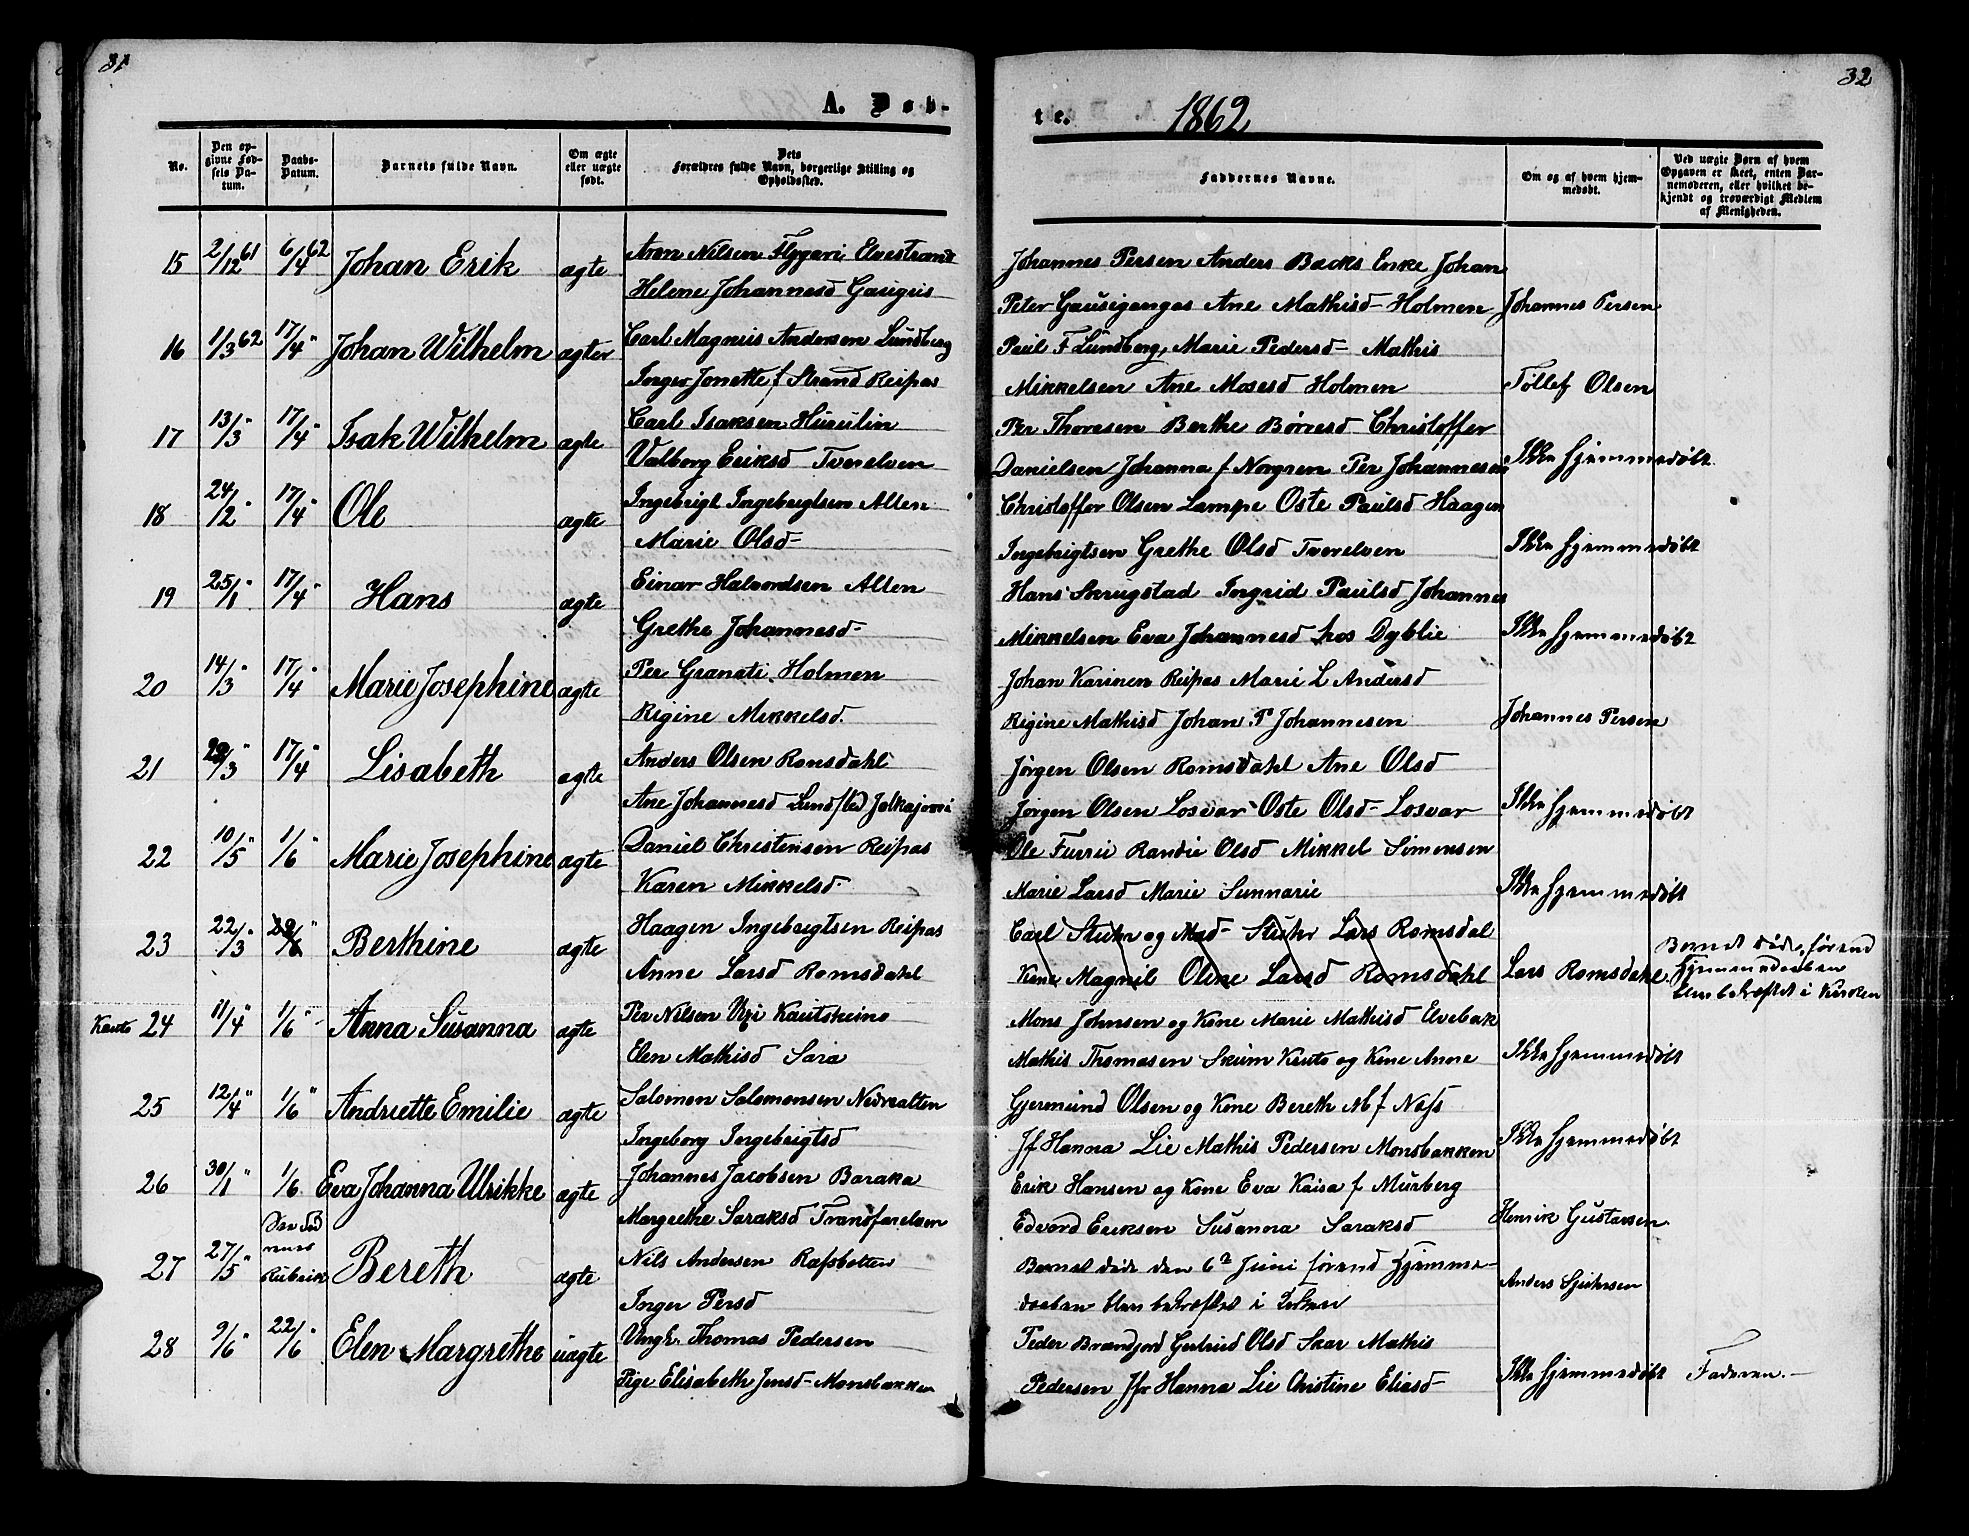 31
A. Døb-
No.
Den op-
givne Fød-
sels Da-
tum.
Daabs-
Datum.
Barnets fulde Navn.
Om ægte
eller uægte
født.
Dets
Forældres fulde Navn, borgerlige Stilling og
Opholdssted.
15 2/12 61 6/4 62 Johan Erik ægte Aron Nilsen Flygari Elvestrand
Helene Johannesd Gausigus
16 1/3 62 17/4 " Johan Wilhelm ægter Carl Magnus Andersen Lundberg
Inger Jonette f Strand Reipas
17 13/3 " 17/4 " Isak Wilhelm ægte Carl Isaksen Hurulin
Valborg Eriksd Tverelven
18 24/2 " 17/4 " Ole ægte Ingebrigt Ingebrigtsen Alten
Marie Olsd
19 25/1 " 17/4 " Hans ægte Einar Halvordsen Alten
Grethe Johannesd
20 14/3 " 17/4 " Marie Josephine ægte Per Granati Holmen
Rigine Mikkelsd.
21 /3 " 17/4 " Lisabeth ægte Anders Olsen Romsdahl
Ane Johannesd Lundsted Jolkajovri
22 10/5 " 1/6 " Marie Josephine ægte Daniel Christensen Reipas
Karen Mikkelsd.
23 22/3 " /6 " Berthine ægte Haagen Ingebrigtsen Reipas
Anne Larsd Romsdahl
Kauto 24 11/4 " 1/6 " Anna Susanna ægte Per Nilsen Uri Kautokeino
Elen Mathisd Sara
25 12/4 " 1/6 " Andriette Emilie ægte Salomon Salomonsen Nedrealten
Ingeborg Ingebrigtsd
26 30/1 1/6 Eva Johanna Ulrikke ægte Johannes Jacobsen Baraka
Margrethe Saraksd Tranfarelven
27 27/5 " Rubrik Bereth ægte Nils Andersen Rafsbotten
Inger Persd
28 9/6 " 22/6 " Elen Margrethe uægte Ungk. Thomas Pedersen
Pige Elisabeth Jensd Monsbakken
32
te. 1862
Faddernes Navne.
Om og af hvem hjem-
medøbt.
Ved uægte Børn af hvem
Opgaven er skeet, enten Bar-
nemoderen, eller hvilket be-
kjendt og troværdigt Medlem
af Menigheden.
Johannes Persen Anders Backs Enke Johan
Peter Gausiganges Ane Mathisd Holmen Johannes Persen
Paul F Lundberg, Marie Pedersd Mathis
Mikkelsen Ane Mosesd Holmen Tollef Olsen
Per Thoresen Berthe Børresd Christoffer
Danielsen Johanna f Norgren Per Johannesen Ikke hjemmedøbt
Christoffer Olsen Lampe Oste Paulsd Haagen
Ingebrigtsen Grethe Olsd Tverelven Ikke hjemmedøbt
Hans Skrugstad Ingrid Paulsd Johannes
Mikkelsen Eva Johannesd hos Dyblie Ikke hjemmedøbt
Johan Karinen Reipas Marie L Andersd
Rigine Mathisd Johan P Johannesen Johannes Persen
Jørgen Olsen Romsdahl Ane Olsd
Jørgen Olsen Losvar Oste Olsd Losvar Ikke hjemmedøbt
Ole Furrii Randie Olsd Mikkel Simonsen
Marie Larsd Marie Sunnarie Ikke hjemmedøbt
Carl Stuhr og Mad Stuhr Lars Romsdal
Kone Magnil Oline Larsd Romsdahl Lars Romsdahl
Barnet døde, førend
Hjemmedaaben
blev bekræftet i Kirken
Mons Johnsen og Kone Marie Mathisd Elvebak
Mathis Thomasen Skum Kauto og Kone Anne Ikke hjemmedøbt
Gjermund Olsen og Kone Bereth M f Næss
Jf Hanna Lie Mathis Pedersen Monsbakken Ikke hjemmedøbt
Erik Hansen og Kone Eva Kaisa f Murberg
Edvard Eriksen Susanna Saraksd Henrik Gustavsen
Barnet døde den 6te Juni førend Hjemme-
daaben blev bekræftet i Kirken Anders
Peder Brandfjord Gertrud Olsd Skar Mathis
Pedersen Jfr Hanna Lie Christine Eliasd Ikke hjemmedøbt Faderen.